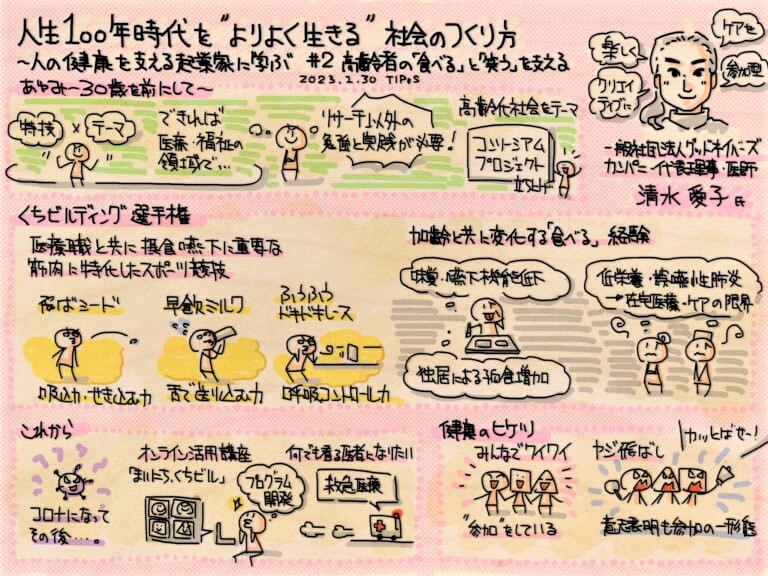 人生100年時代を"よりよく生きる"社会のつくり方
〜人の健康を支える起業家に学ぶ #2 高齢者の「食べる」と「笑う」を支える
2023.1.30 TIP*S
楽しく
ケアを
クリエイ
ティブに
参加型
一般社団法人グッドネイバーズ
カンパニー代表理事・医師
清水 愛子 氏
あゆみ〜30歳を前にして〜
特技
×
テーマ
できれば
医療・福祉の
領域で…
リサーチ以外の
勉強と実践が必要!
高齢化社会をテーマ
コンソーシアム
プロジェクト
立ち上げ
くちビルディング選手権
医療職と共に摂食嚥下に重要な
筋肉に特化したスポーツ競技
飛ばシード
吸込力・せき込み力
早飲ミルク
舌で送り込む力
ふうふう
ドキドキレース
呼吸コントロール力
加齢と共に変化する「食べる」経験
味覚・嚥下機能低下
独居による孤食増加
低栄養・誤嚥性肺炎
→在宅医療・ケアの限界
これから
コロナになって
その後…。
オンライン活用講座
「まいにち、くちビル」
プログラム
開発
何でも看る医者になりたい
救急医療
健康のヒケツ
みんなでワイワイ
"参加"をしている
ヤジ飛ばし
カッとばせ〜!
意志表明も参加の一形態